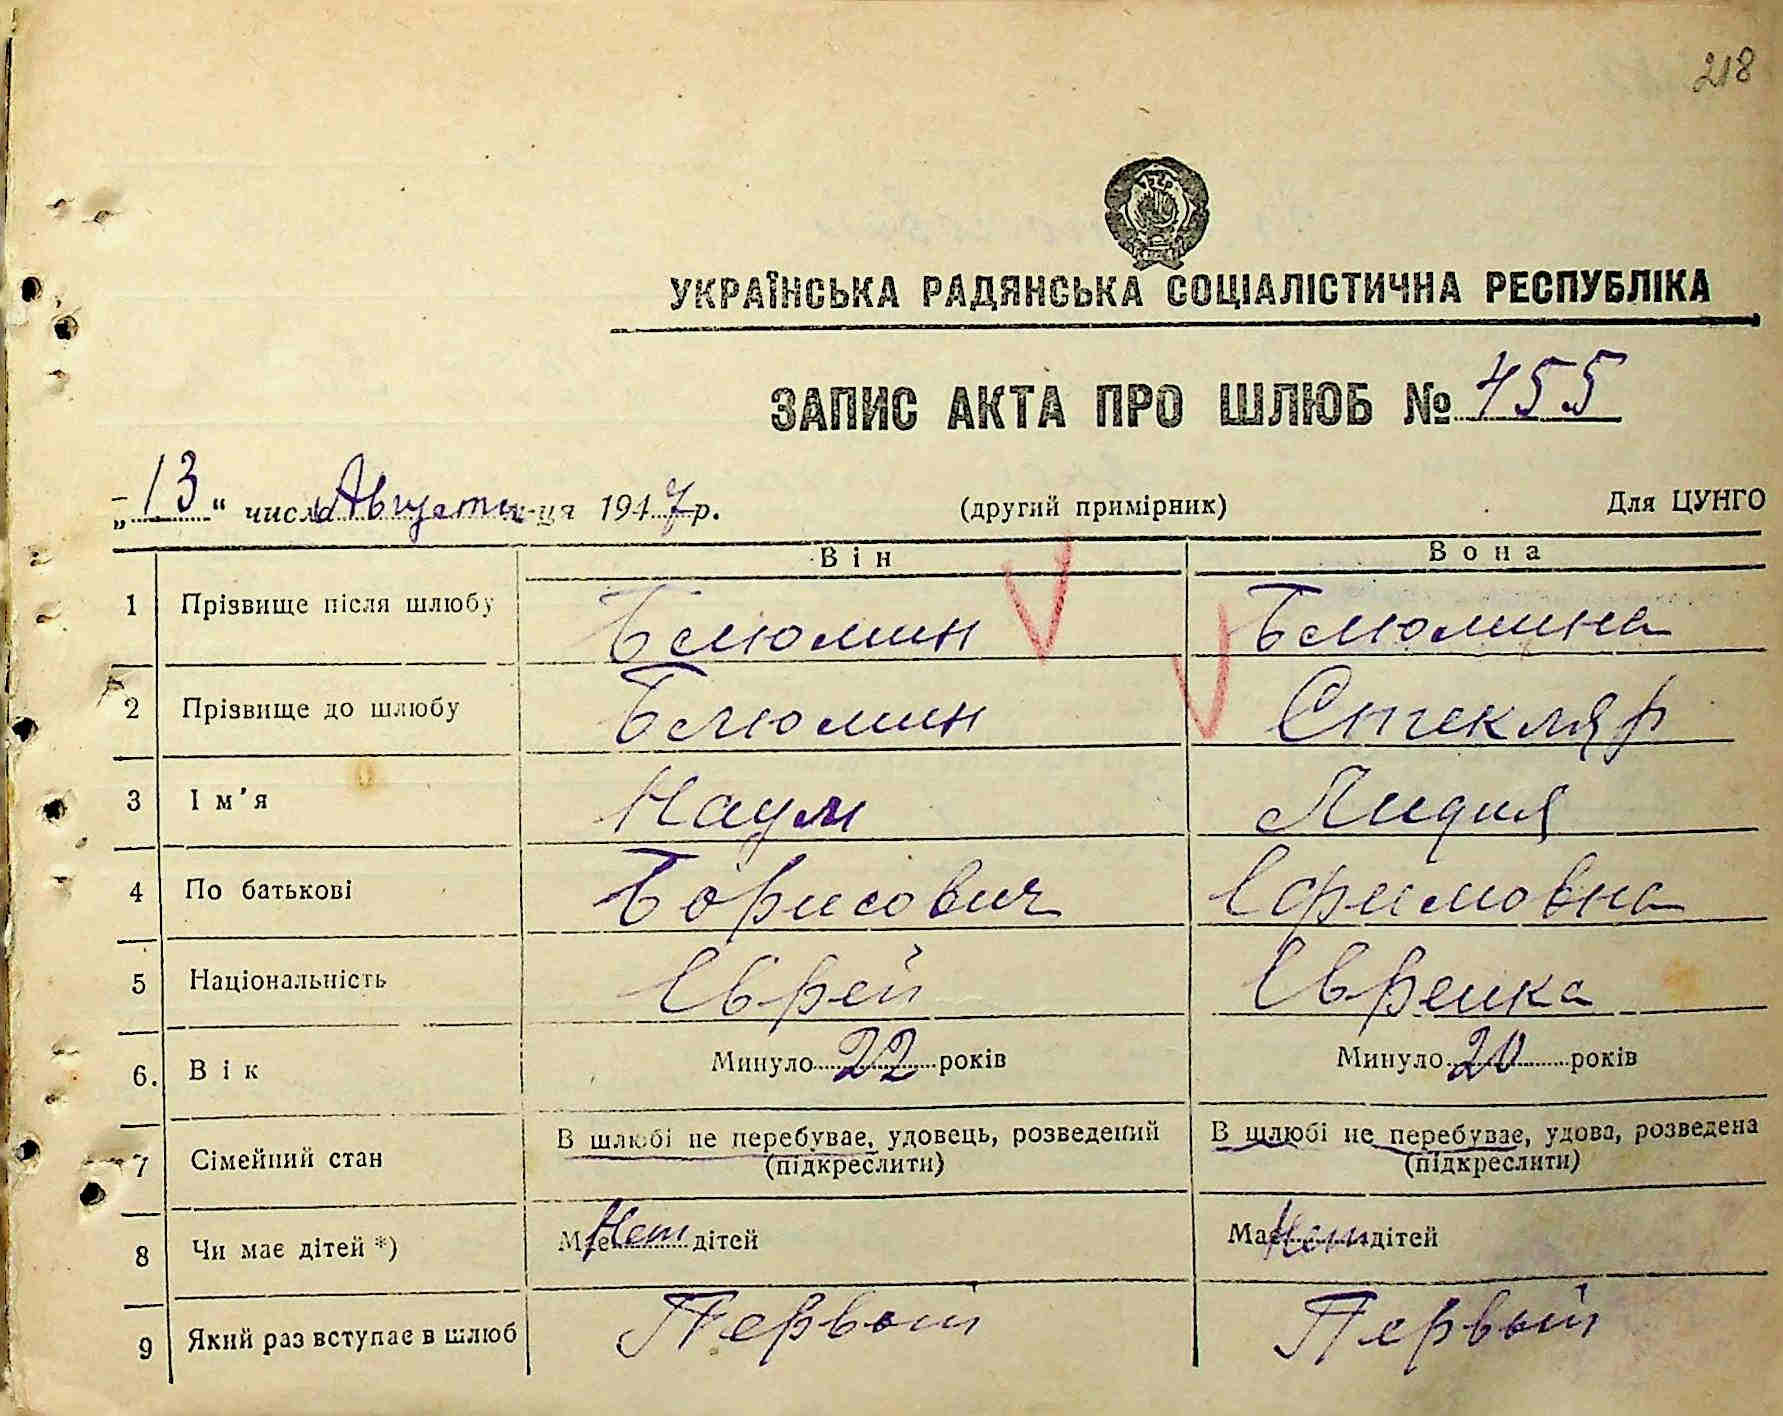 218
УКРАЇНСЬКА РАДЯНСЬКА СОЦІАЛІСТИЧНА РЕСПУБЛІКА
ЗАПИС АКТА ПРО ШЛЮБ № 455
„13“ числа Августа м-ця 1947 р. (другий примірник) Для ЦУНГО
Він Вона
1 Прізвище після шлюбу Блюмин Блюмина
2 Прізвище до шлюбу Блюмин Стекляр
3 Ім'я Наум Лидия
4 По батькові Борисович Ефимовна
5 Національність Еврей Еврейка
6. Вік Минуло 22 років Минуло 20 років
7 Сімейний стан В шлюбі не перебуває, удовець, розведений В шлюбі не перебуває, удова, розведена
(підкреслити) (підкреслити)
8 Чи має дітей *) Має Нет дітей Має Нет дітей
9 Який раз вступає в шлюб Первый Первый